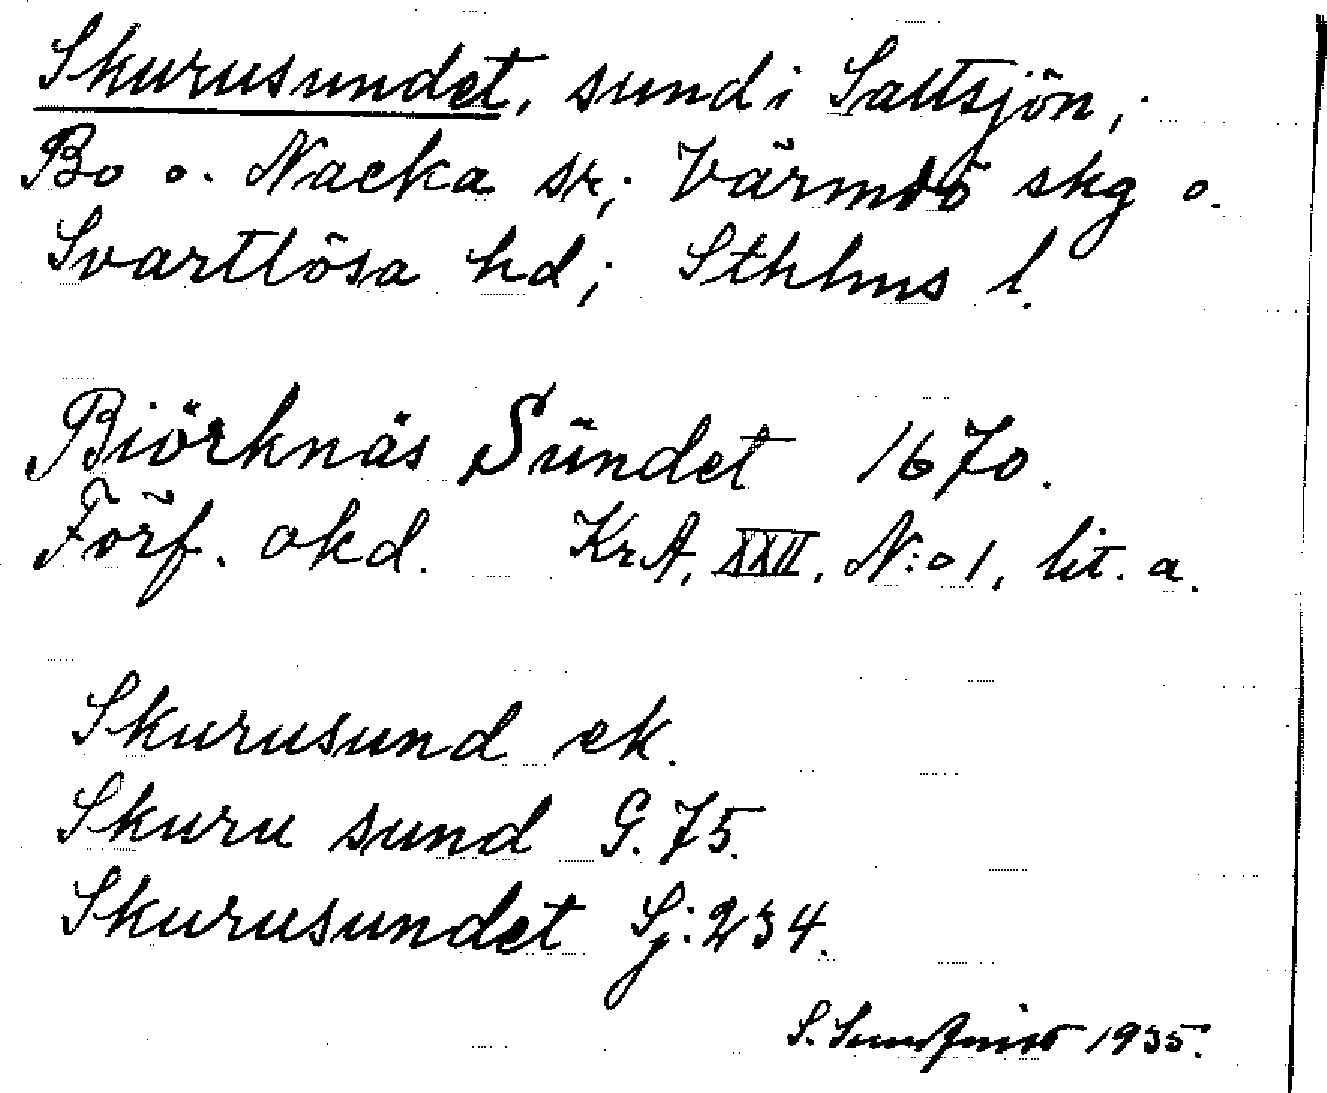 Skurusundet, sund i Saltsjön,
Bo o. Nacka sr; Värmdö skg o.
Svartlösa hd; Sthlms l.
Biörknäs Sündet 1670.
Förf. okd. KrA, XXII, N:o 1, lit. a.
Skurusund ek.
Skuru sund G. 75.
Skurusundet Sj: 234.
S. 1935.